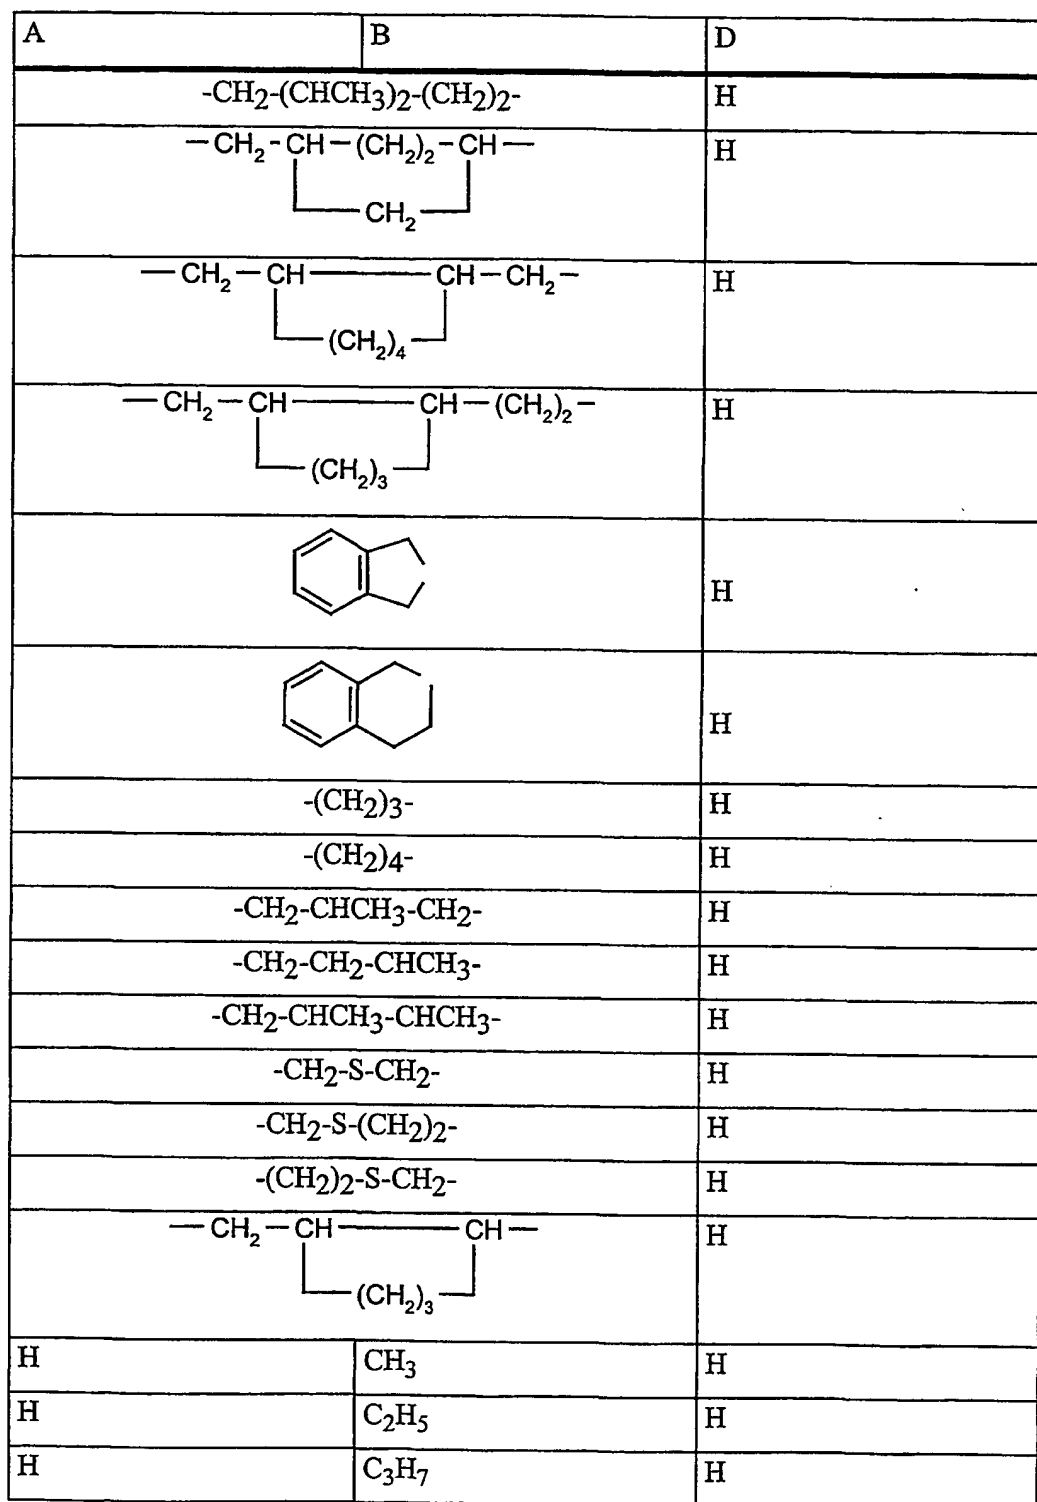 A B D
-CH2-(CHCH3)2-(CH2)2- H
—CH₂-CH—(CH₂)₂-CH— H
CH₂
—CH₂—CH CH—CH₂— H
(CH₂)₄
—CH₂—CH CH—(CH₂)₂— H
(CH₂)₃
H
H
-(CH2)3- H
-(CH2)4- H
-CH2-CHCH3-CH2- H
-CH2-CH2-CHCH3- H
-CH2-CHCH3-CHCH3- H
-CH2-S-CH2- H
-CH2-S-(CH2)2- H
-(CH2)2-S-CH2- H
—CH₂—CH CH— H
(CH₂)₃
H CH₃ H
H C₂H₅ H
H C₃H₇ H